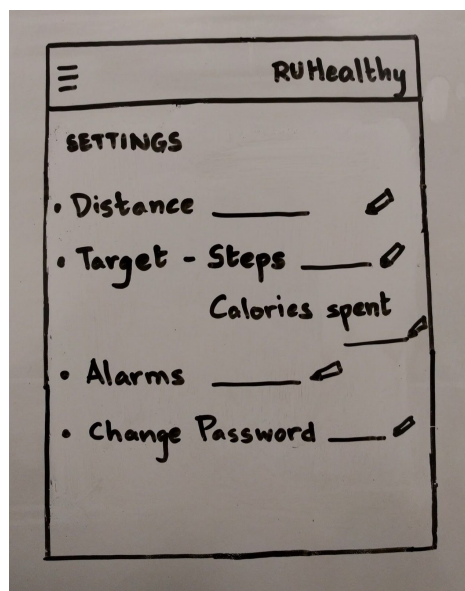 RUHealthy
SETTINGS
• Distance ______
• Target - Steps ______
Calories spent
______
• Alarms ______
• Change Password ______